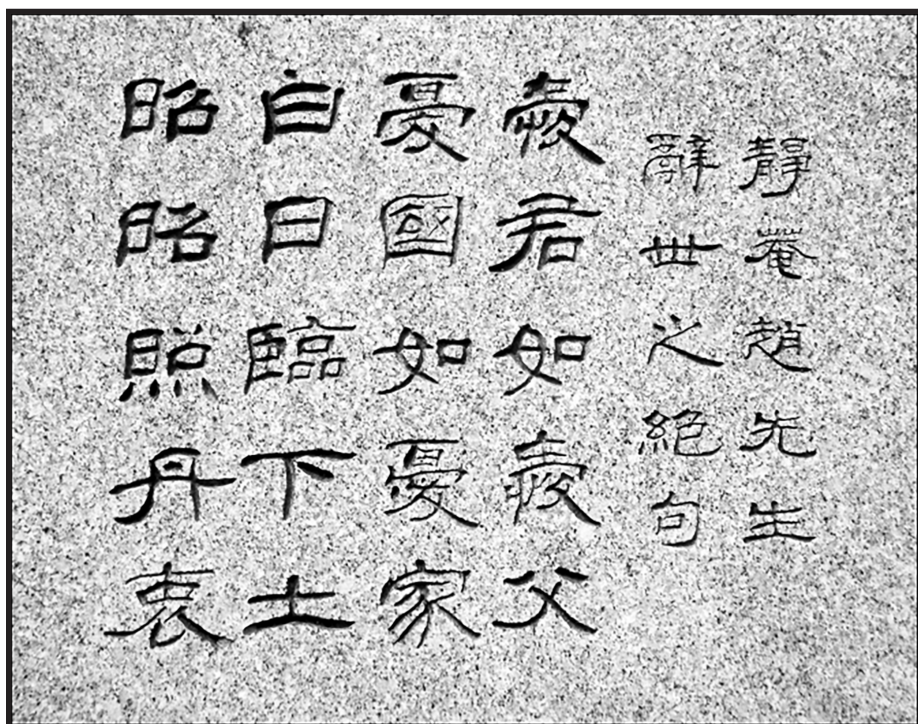 靜菴趙先生
辭世之絕句
愛君如愛父
憂國如憂家
白日臨下土
昭昭照丹衷